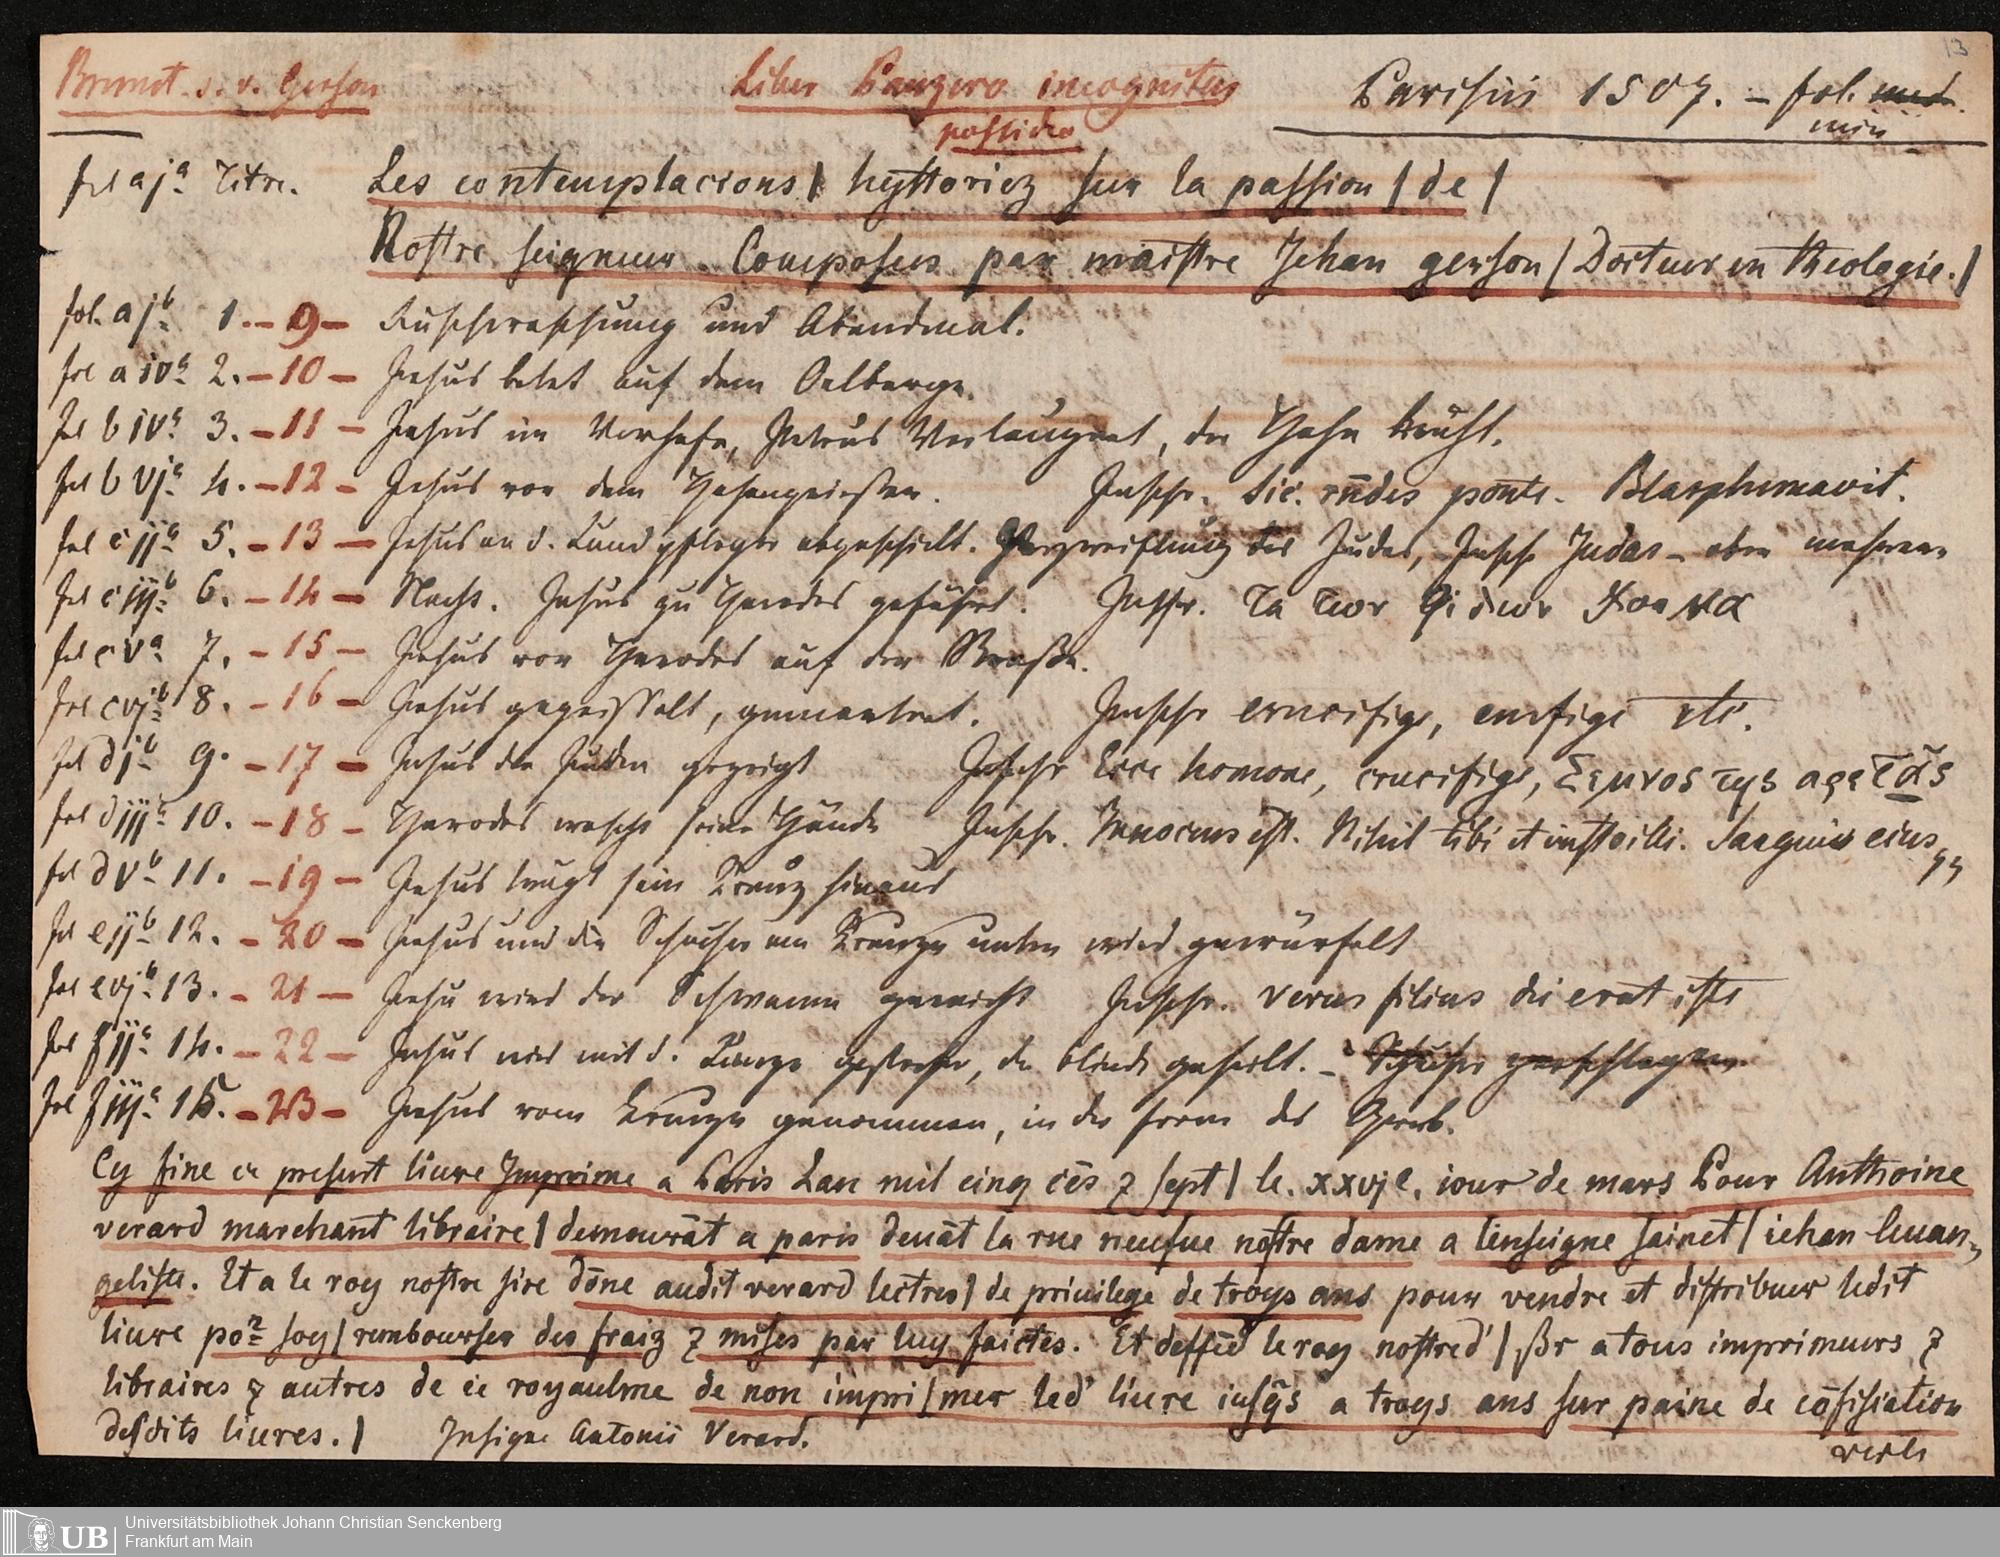 13
Brunet. s. v. Gerson Liber Panzero incognitus Parisiis 1507. – fol. med.
possideo min
fol aja Titre. Les contemplacions | hystoriez sur la passion | de |
Nostre seigneur. Composees par maistre Jehan gerson | Docteur en theologie. |
fol. ajb 1. – 9 – Fuschwaschung und Abendmal.
fol a iva 2. – 10 – Jesus betet auf dem Oelberge.
fol b iva 3. – 11 – Jesus im Vorhofe, Petrus Verläugnet, der Hahn kräht.
fol b vja 4. – 12 – Jesus vor dem Hohenpriester. Inschr. Sic. rñdes ponti. Blasphemavit.
fol c jja 5. – 13 – Jesus an d. Landpfleger abgeschickt. Verzweiflung des Judas, – Insch Judas – oben mehrere
fol c iijb 6. – 14 – Nachts. Jesus zu Herodes geführt. Inschr.
fol c va 7. – 15 – Jesus vor Herodes auf der Straße.
fol cvjb 8. – 16 – Jesus gegeisselt, gemartert. Inschr crucifige, crucifige etc.
fol djb 9. – 17 – Jesus den Juden gezeigt Inschr Ecce homone, crucifige,
fol d iija 10. – 18 – Herodes wascht seine Hände Inschr. Innocens est. Nihil tibi et iusto illi. Sanguis eius
fol d vb 11. – 19 – Jesus trägt sein Kreuz hinaus
fol e jjb 12. – 20 – Jesus und die Schächer am Kreuze unten wird gewürfelt
fol evjb 13. – 21 – Jesu wird der Schwamm gereicht Inschr. verus filius dei erat iste
fol f jja 14. – 22 – Jesus wird mit d. Lanze gestochen, der blinde geheilt. – Schächer zerschlagen
fol f iija 15. – 23 – Jesus vom Kreuze genommen, in der ferne das Grab.
Cy fine ce present liure Imprime a Paris Lan mil cinq cēs ⁊ sept | le. xxvje. iour de mars Pour Anthoine
verard marchant libraire | demourāt a paris deuāt la rue neufue nostre dame a lenseigne sainct | iehan leuan-
geliste. Et a le roy nostre sire dōne audit verard lectres | de priuilege de troys ans pour vendre et distribuer ledit
liure por soy | rembourser des fraiz ⁊ mises par luy faictes. Et deffēd le roy nostred' | ßr a tous imprimeurs ⁊
libraires ⁊ autres de ce royaulme de non impri | mer led' liure iusq̄s a troys ans sur paine de cōfisiation
desdits liures. | Insigne Antonii Verard.
verte
UB Universitätsbibliothek Johann Christian Senckenberg
Frankfurt am Main